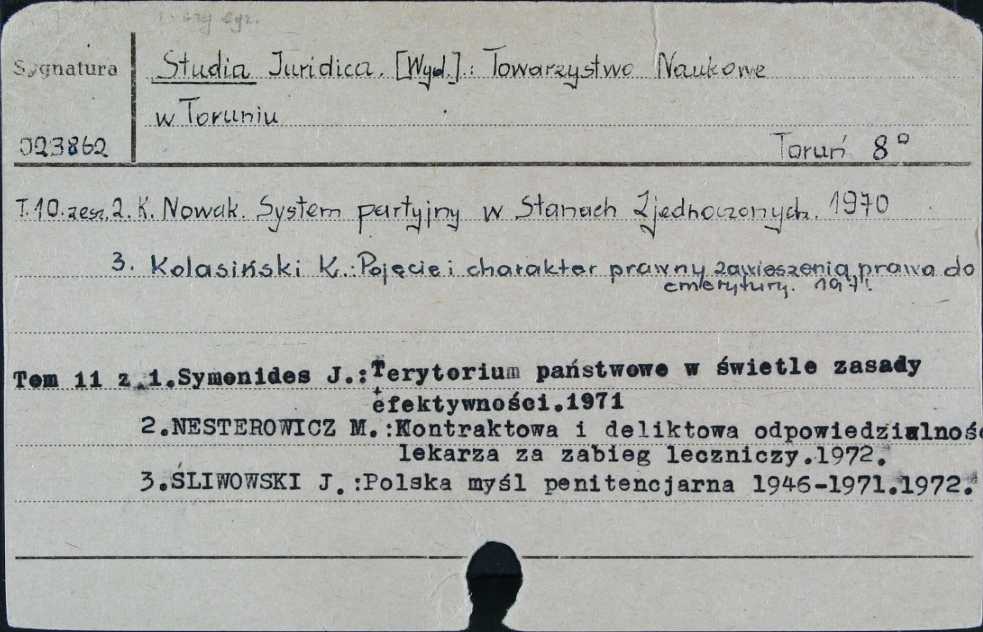 Sygnatura
Studia Juridica. [Wyd.]: Towarzystwo Naukowe
w Toruniu
023862
Toruń 8°
T.10.zesz.2. K. Nowak. System partyjny w Stanach Zjednoczonych. 1970
3. Kolasiński K.: Pojęcie i charakter prawny zawieszenia prawa do
emerytury. 1971.
Tom 11 z.1.Symonides J.:Terytorium państwowe w świetle zasady
efektywności.1971
2.NESTEROWICZ M.:Kontraktowa i deliktowa odpowiedzialność
lekarza za zabieg leczniczy.1972.
3.ŚLIWOWSKI J.:Polska myśl penitencjarna 1946-1971.1972.